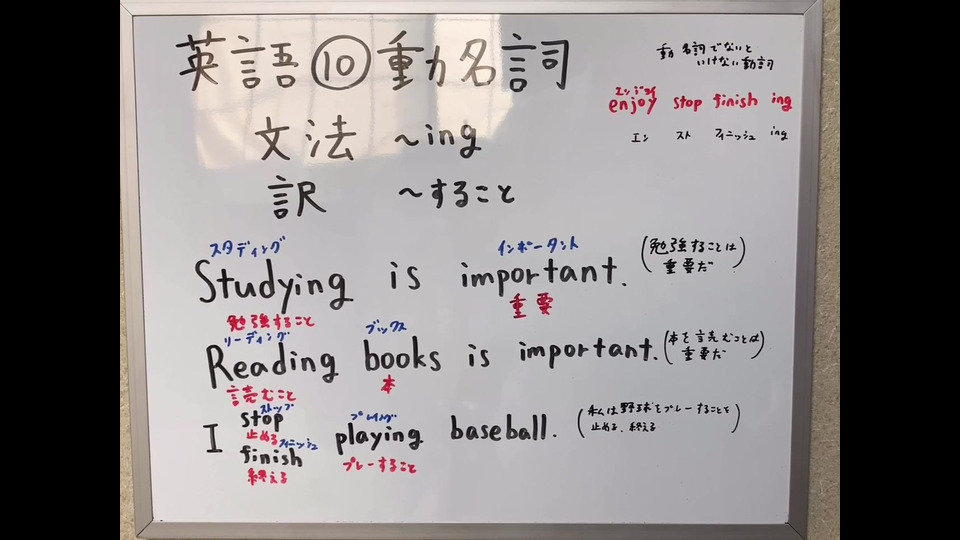 英語⑩動名詞
動名詞でないと
いけない動詞
エンジョイ
enjoy stop finish ing
エン スト フィニッシュ ing
文法 ~ing
訳 ~すること
スタディング インポータント
Studying is important.
勉強すること 重要
(勉強することは
重要だ)
リーディング ブックス
Reading books is important.
読むこと 本
(本を読むことは
重要だ)
ストップ
stop
止める
フィニッシュ
finish
終える
プレイング
I playing baseball.
プレーすること
(私は野球をプレーすることを
止める、終える)